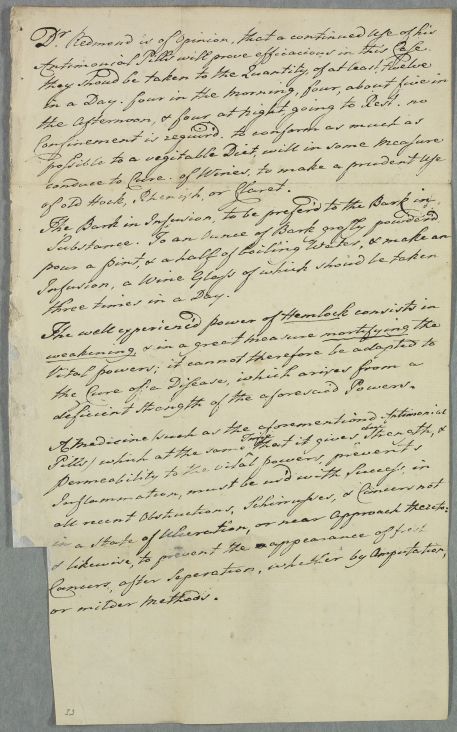 Dr. Redmond is of Opinion, that a continued Use of his
Antimonial Pills will prove efficacious in this Case.
they shou'd be taken to the Quantity of at least, Twelve
in a Day. four in the Morning, four, about five in
the Afternoon, & four at night going to Rest. no
Confinement is requir'd. to conform as much as
possible to a vegitable Diet, will in some Measure
conduce to Cure. of Wines, to make a prudent Use
of old Hock, Rhenish, or Claret.
The Bark in Infusion, to be prefer'd to the Bark in
Substance. To an Ounce of Bark grosly powder'd
pour a pint, & a half of boiling Water, & make an
Infusion, a Wine Glass of which shou'd be taken
three times in a Day.
The well experienc'd power of Hemlock consists in
weakening, & in a great measure mortifying the
Vital powers; it cannot therefore be adapted to
the Cure of a Disease, which arises from a
deficient Strength of the aforesaid Powers.
A Medicine (such as the aforemention'd Antimonial
Pills) which at the same Time that it gives Strength, &
permeability to the Vital powers, prevents
Inflammation, must be us'd with Success, in
all recent Obstructions, Schirrusses, & Cancers not
in a State of Ulceration, or near approach thereto:
& likewise, to prevent the appearance of
Cancers, after Seperation, whether by Amputation,
or milder Methods.
53